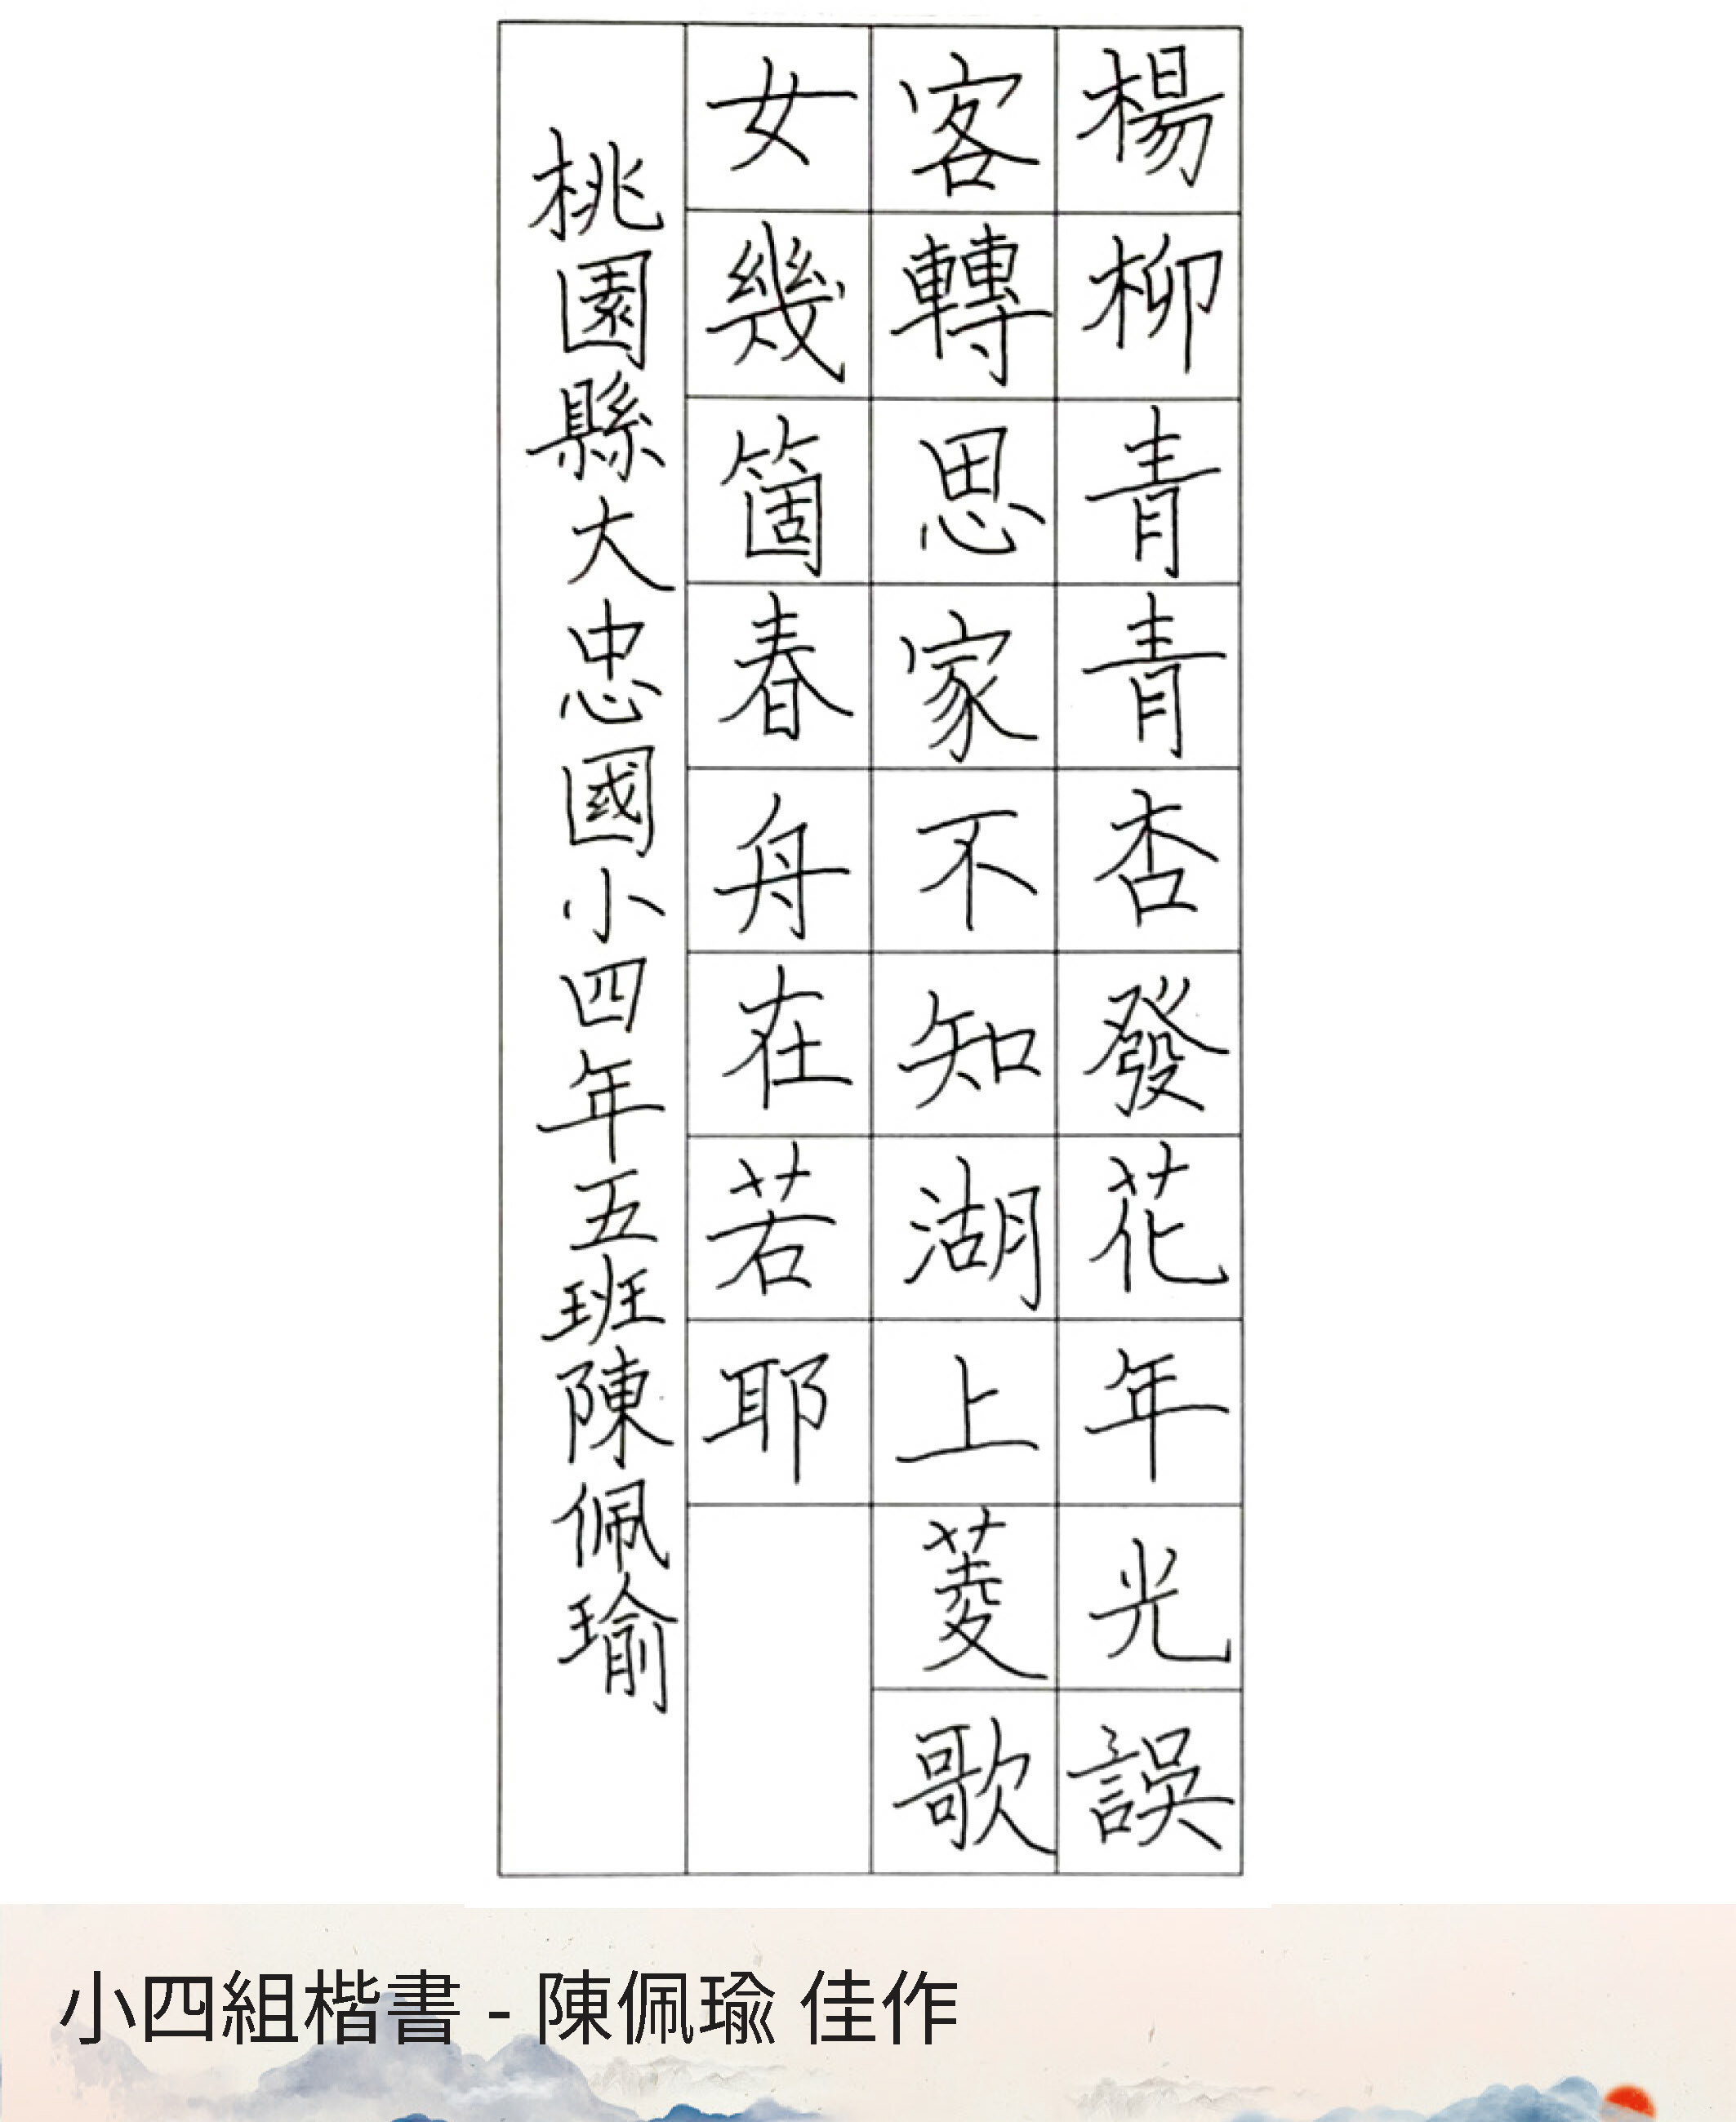 楊柳青青杏發花年光誤
客轉思家不知湖上菱歌
女幾箇春舟在若耶
桃園縣大忠國小四年五班陳佩瑜
小四組楷書 - 陳佩瑜 佳作